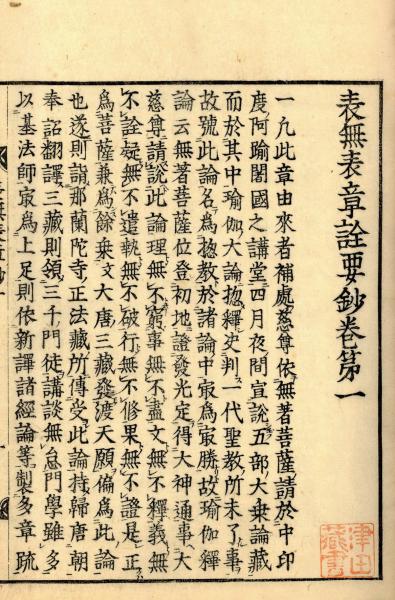 表無表章詮要鈔卷第一
一凢此章由來者補處慈尊依無著菩薩請於中印
度阿踰闍國之講堂四月夜間宣說五部大乗論藏
而於其中瑜伽大論揔釋史判一代聖教所未了事
故號此論名爲揔教於諸論中㝡爲㝡勝故瑜伽釋
論云無著菩薩位登初地證發光定得大神通事大
慈尊請說此論理無不窮事無不盡文無不釋義無
不詮疑無不遣執無不破行無不修果無不證是正
爲菩薩兼爲餘乗文大唐三藏發渡天願偏爲此論
也遂則詣那蘭陀寺正法藏所傳受此論持歸唐朝
奉詔翻譯三藏則領三千門徒講談無怠門學雖多
以基法師㝡爲上足則依新譯諸經論等製多章䟽
津田
藏書